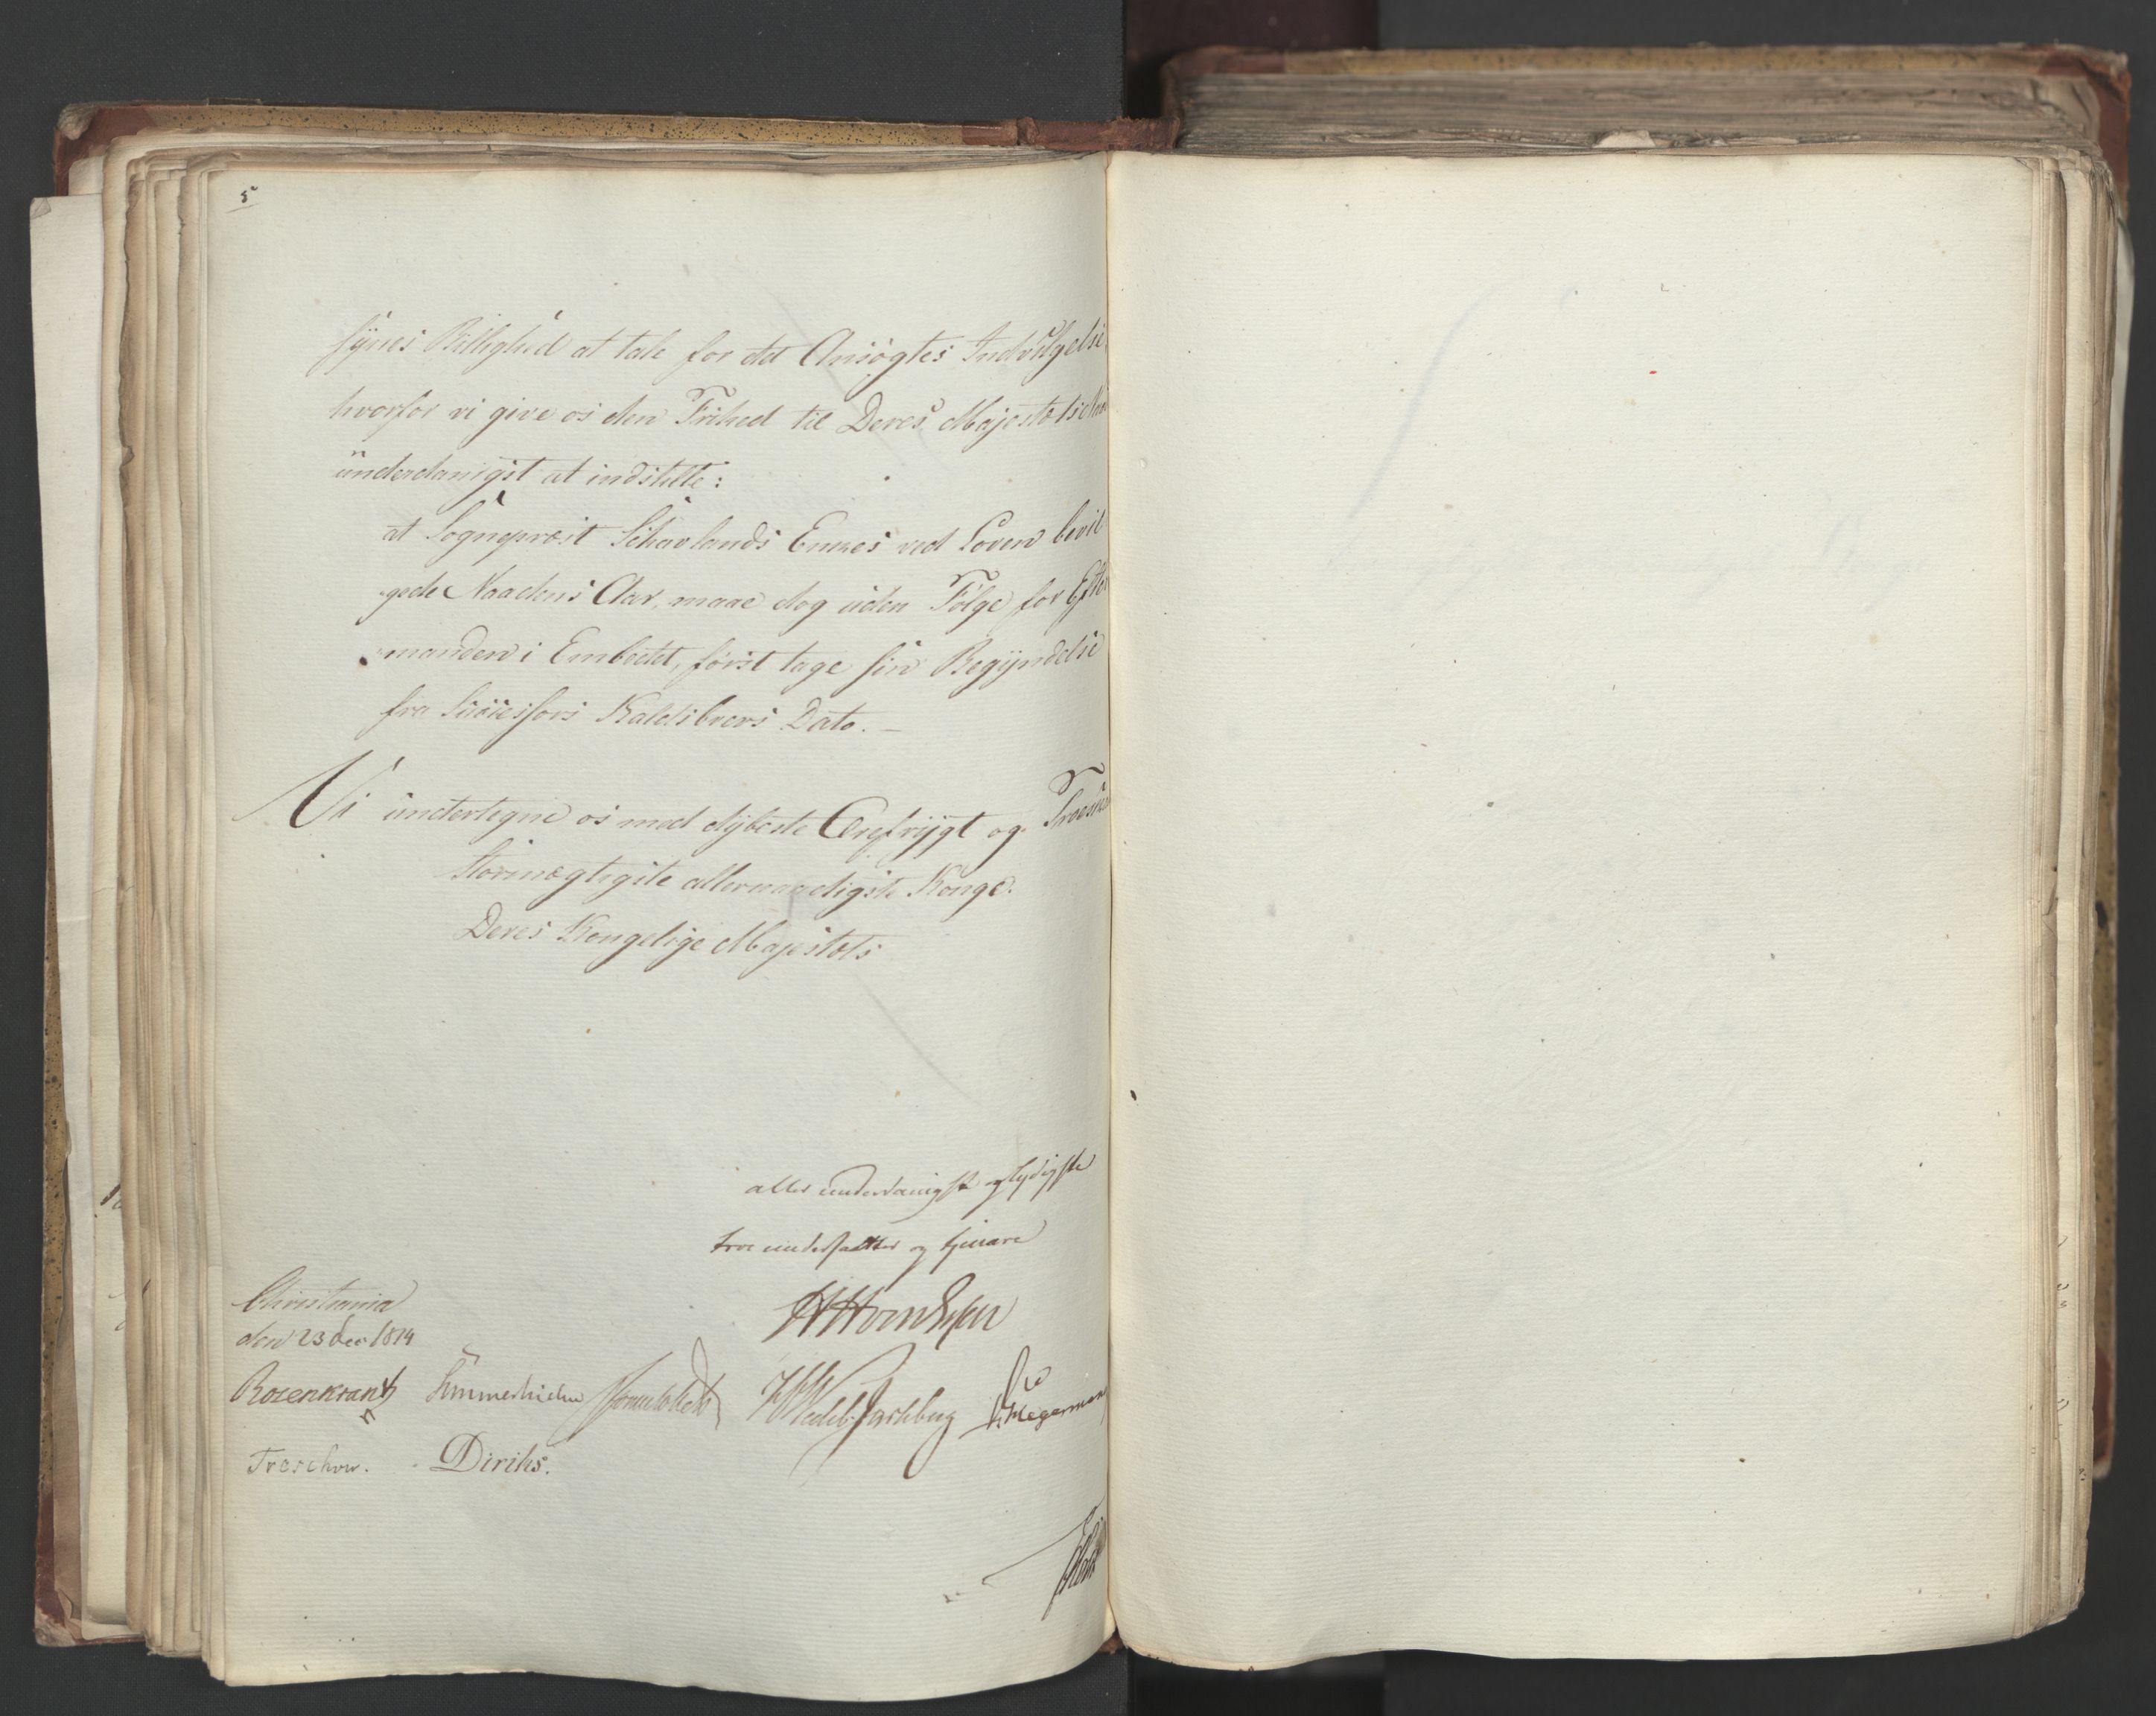 5
synes Billighed at tale for det Ansøgtes Indvilgelse
hvorfor vi give os den Frihed til Deres Majestæts
underdanigst at indstille:
at Sogneprest Schavlands Enkes ved Loven bevil
gede Naadens Aar, maae dog uden Følge for Efter
manden i Embedet, først tage sin Begyndelse
fra Successors Kaldsbrevs Dato. —
Vi undertegne os med dybeste Ærefrygt og
Stormægtigste allernaadigste Konge.
Deres Kongelige Majestæts
aller underdanigste og lydigste
troe undersaatter og tjenare
Christiania
den 23 Dec 1814
Rosenkrantz Sommerhielm Wedel Jarlsberg Hegermann
Treschow. Diriks.